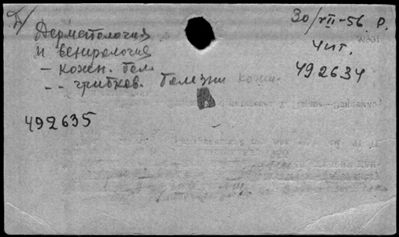 Б/
30/VII-56 р.
Дерматология
и венерология
чит.
- кожн. бол.
492634
- - грибков. болезни кожи.
492635